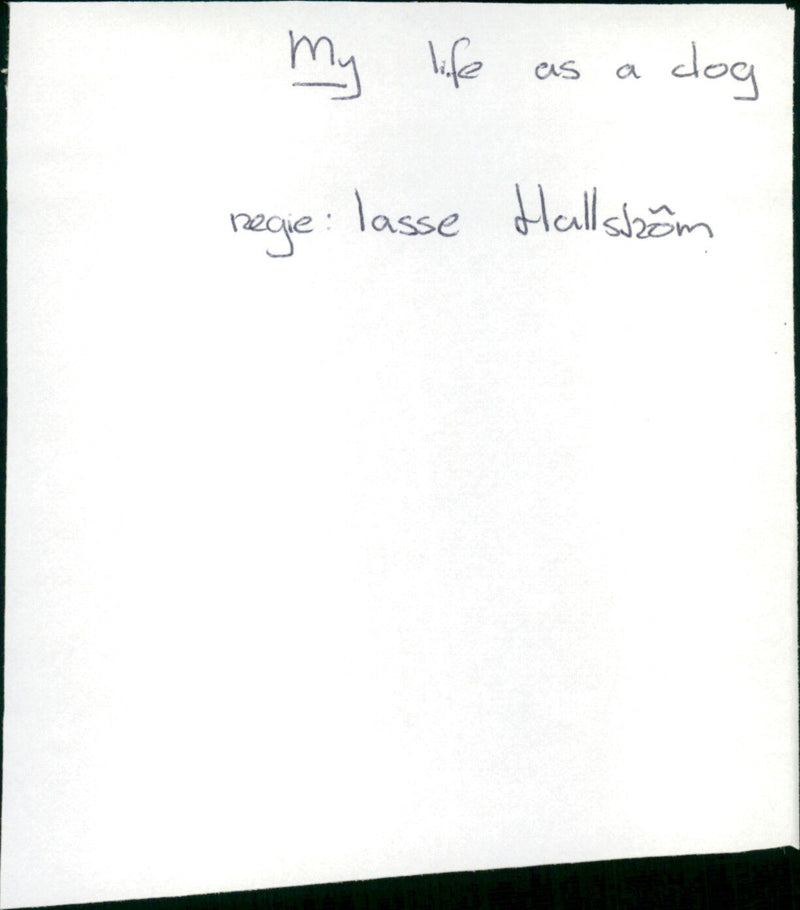 My life as a dog
regie: lasse Hallström